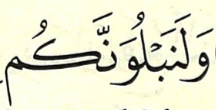 وَلَنَبْلُوَنَّكُمْ